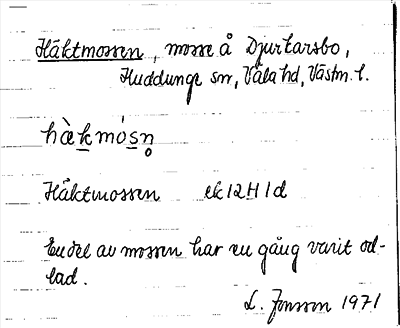 Häktmossen, mosse å Djurkarsbo,
Huddunge sn, Våla hd, Västm. l.
hæ̀k̲mós̲n̥
Häktmossen ek 12H 1d
En del av mossen har en gång varit od-
lad.
L. Jonsson 1971